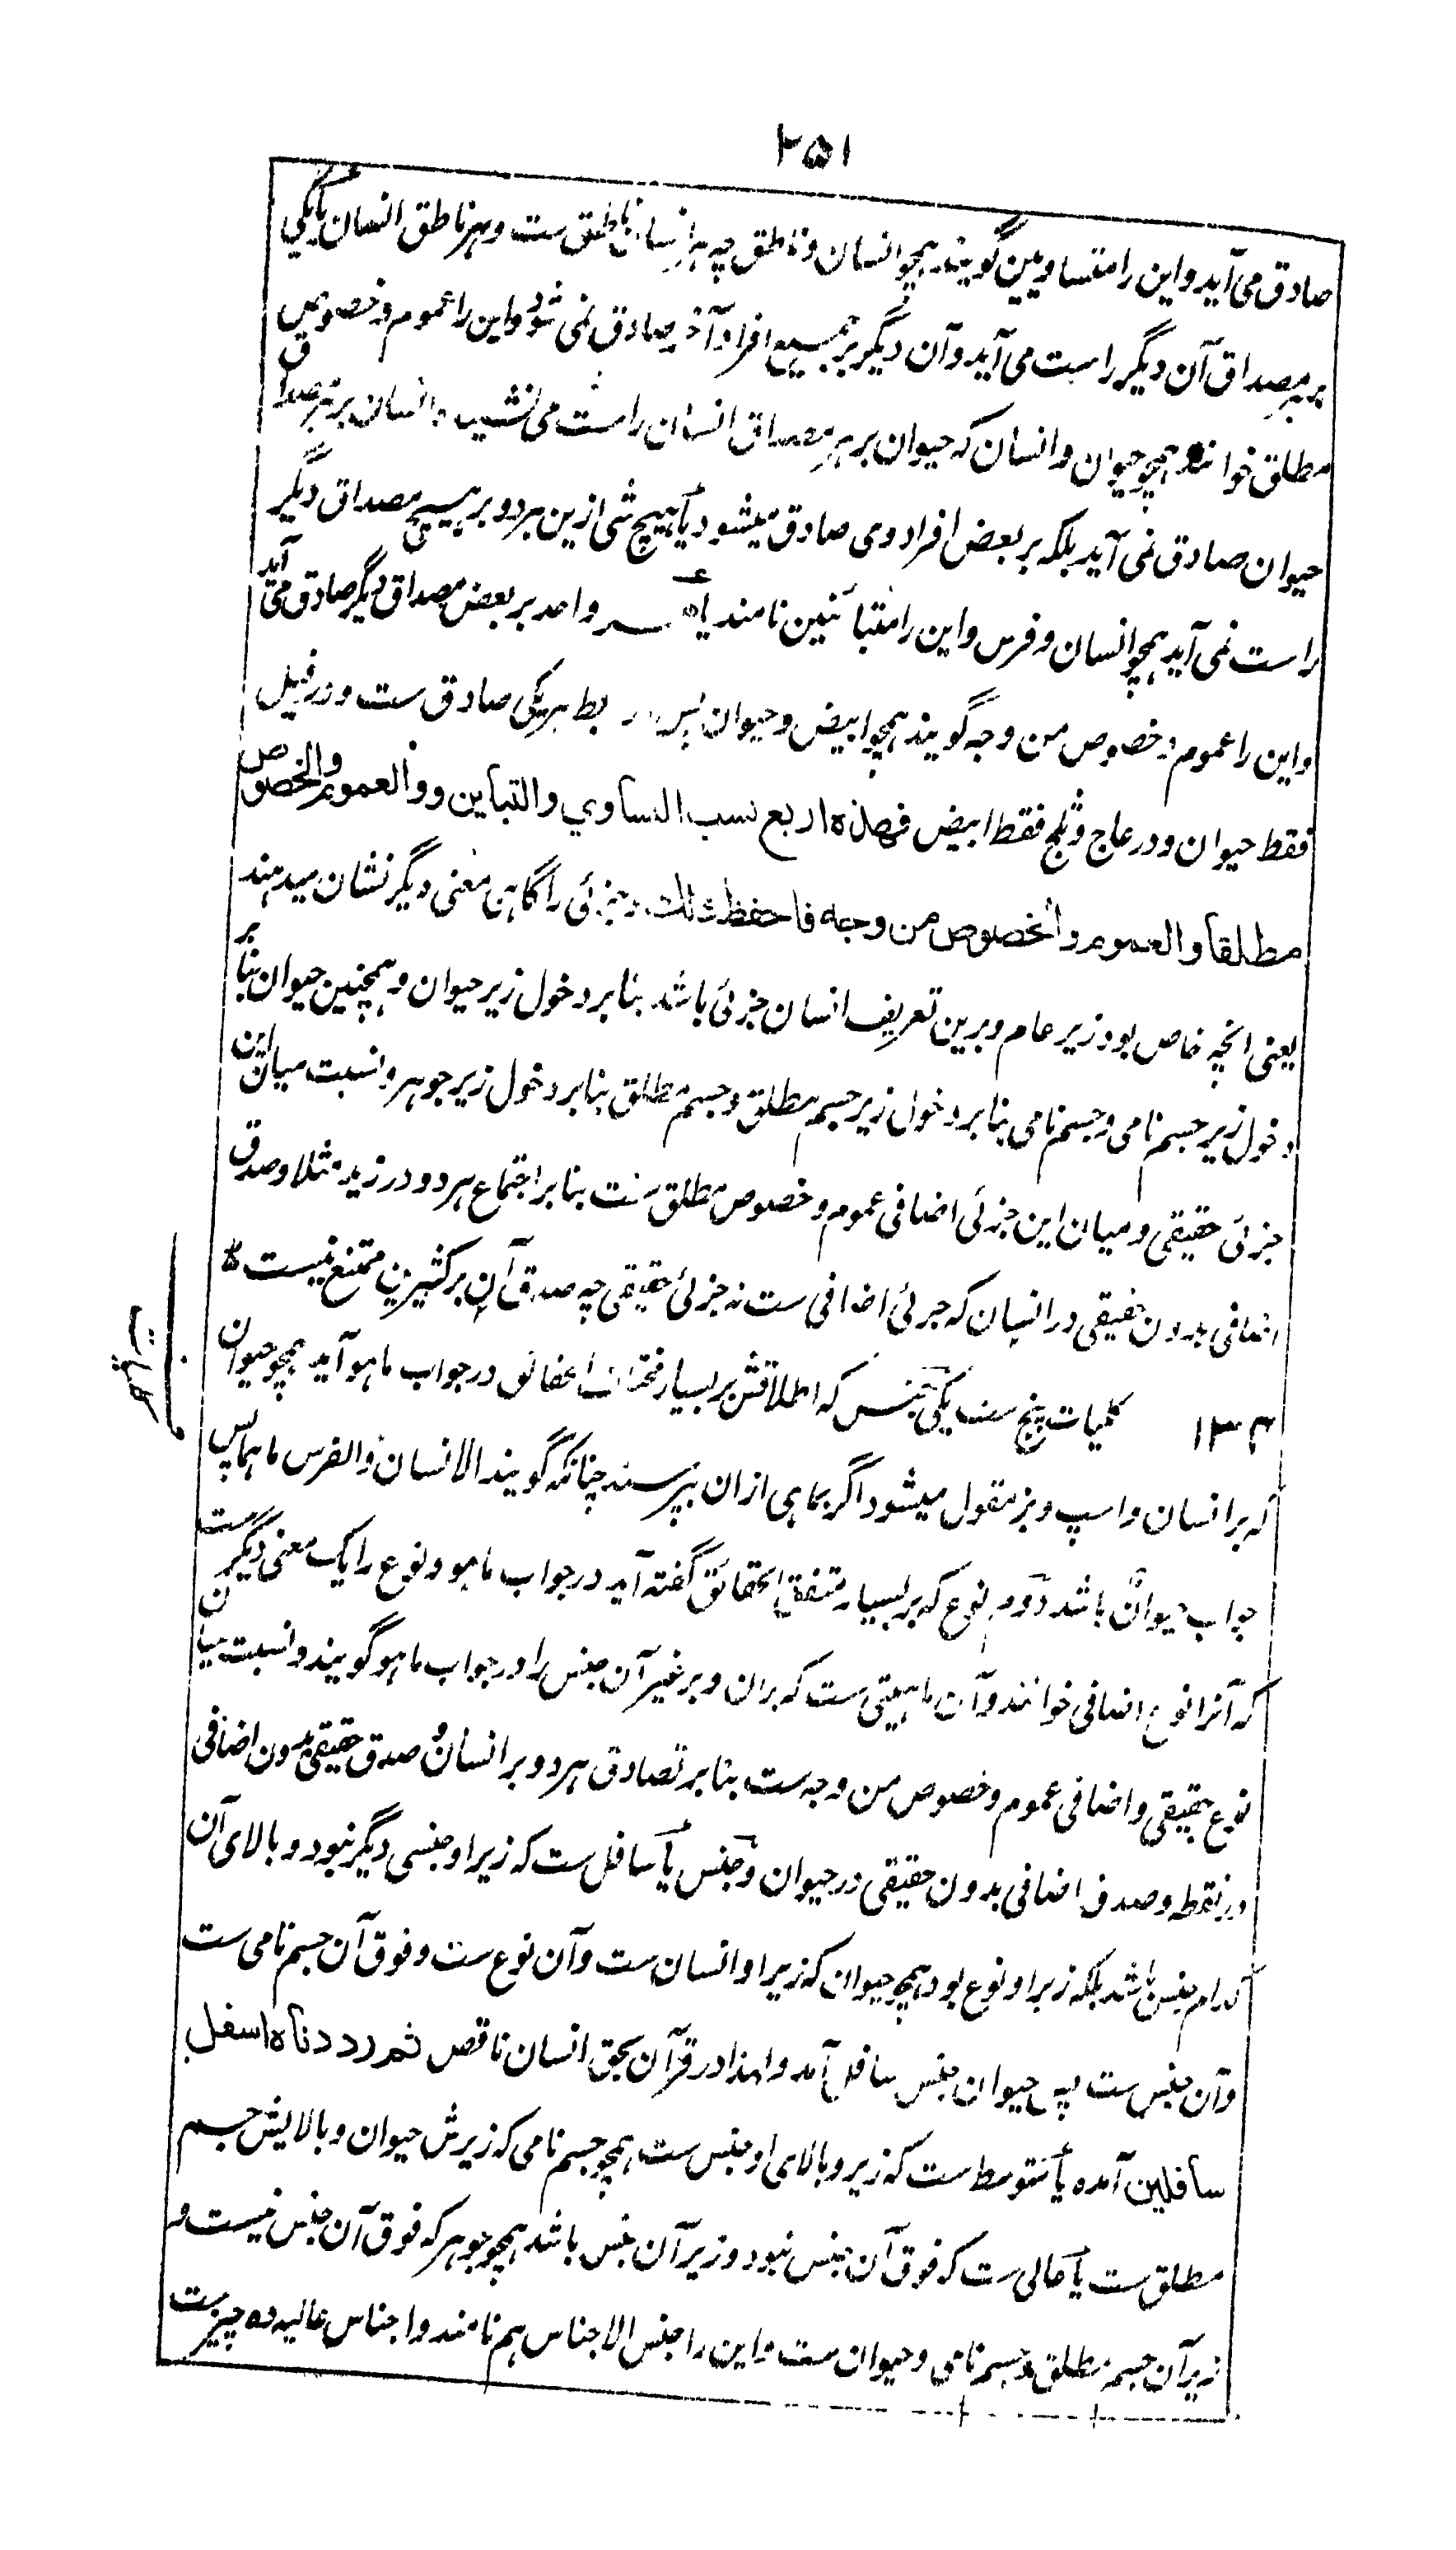 ۲۵۱
صادق می آید و این را متساویین گویند همچو انسان و ناطق چه هر انسان ناطق ست و هر ناطق انسان یا یکی
بر هر مصداق آن دیگر راست می آید و آن دیگر بر جمیع افراد آخر صادق نمی شود و این را عموم و خصوص
مطلق خوانند همچو حیوان و انسان که حیوان بر هر مصداق انسان راست می نشیند و انسان بر هر مصداق
حیوان صادق نمی آید بلکه بر بعض افراد وی صادق میشود یا هیچ شی ازین هر دو بر هیچ مصداق دیگر
راست نمی آید همچو انسان و فرس و این را متبائنین نامند یا واحد بر بعض مصداق دیگر صادق می آید
و این را عموم و خصوص من وجه گویند همچو ابیض و حیوان پس در بط هر یکی صادق ست و در فیل
فقط حیوان و در عاج و ثلج فقط ابیض فهذه اربع نسب التساوي والتباين ووالعموم والخصوص
مطلقا والعموم والخصوص من وجه فاحفظ ذلك و جزئی را گاهی معنی دیگر نشان میدهند
یعنی انچه خاص بود زیر عام و برین تعریف انسان جزئی باشد بنا بر دخول زیر حیوان و همچنین حیوان بنا بر
دخول زیر جسم نامی و جسم نامی بنا بر دخول زیر جسم مطلق و جسم مطلق بنا بر دخول زیر جوهر و نسبت میان این
جزئی حقیقی و میان این جزئی اضافی عموم و خصوص مطلق ست بنا بر اجتماع هر دو در زید مثلا و صدق
اضافی بدون حقیقی در انسان که جزئی اضافی ست نه جزئی حقیقی چه صدق آن بر کثیرین ممتنع نیست
۱۳۴ کلیات پنج ست یکی جنس که اطلاقش بر بسیار مختلف الحقائق در جواب ما هو آید همچو حیوان
که بر انسان و اسپ و بز مقول میشود اگر بماهی ازان بپرسند چنانکه گویند الانسان والفرس ما هما پس
جواب حیوان باشد دوم نوع که بر بسیار متفق الحقائق گفته آید در جواب ما هو و نوع را یک معنی دیگر ست
که آنرا نوع اضافی خوانند و آن ماهیتی ست که بران و بر غیر آن جنس را در جواب ما هو گویند و نسبت میان
نوع حقیقی و اضافی عموم و خصوص من وجه ست بنا بر تصادق هر دو بر انسان و صدق حقیقی بدون اضافی
در نقطه و صدق اضافی بدون حقیقی در حیوان و جنس یا سافل ست که زیر او جنسی دیگر نبود و بالای آن
کدام جنس باشد بلکه زیر او نوع بود همچو حیوان که زیر او انسان ست و آن نوع ست و فوق آن جسم نامی ست
و آن جنس ست پس حیوان جنس سافل آمد و لهذا در قرآن بحق انسان ناقص ثم رددناه اسفل
سافلين آمده یا متوسط ست که زیر و بالای او جنس ست همچو جسم نامی که زیرش حیوان و بالایش جسم
مطلق ست یا عالی ست که فوق آن جنس نبود و زیر آن جنس باشد همچو جوهر که فوق آن جنس نیست و
زیر آن جسم مطلق و جسم نامی و حیوان ست و این را جنس الاجناس هم نامند و اجناس عالیه ده چیز ست
کلیات